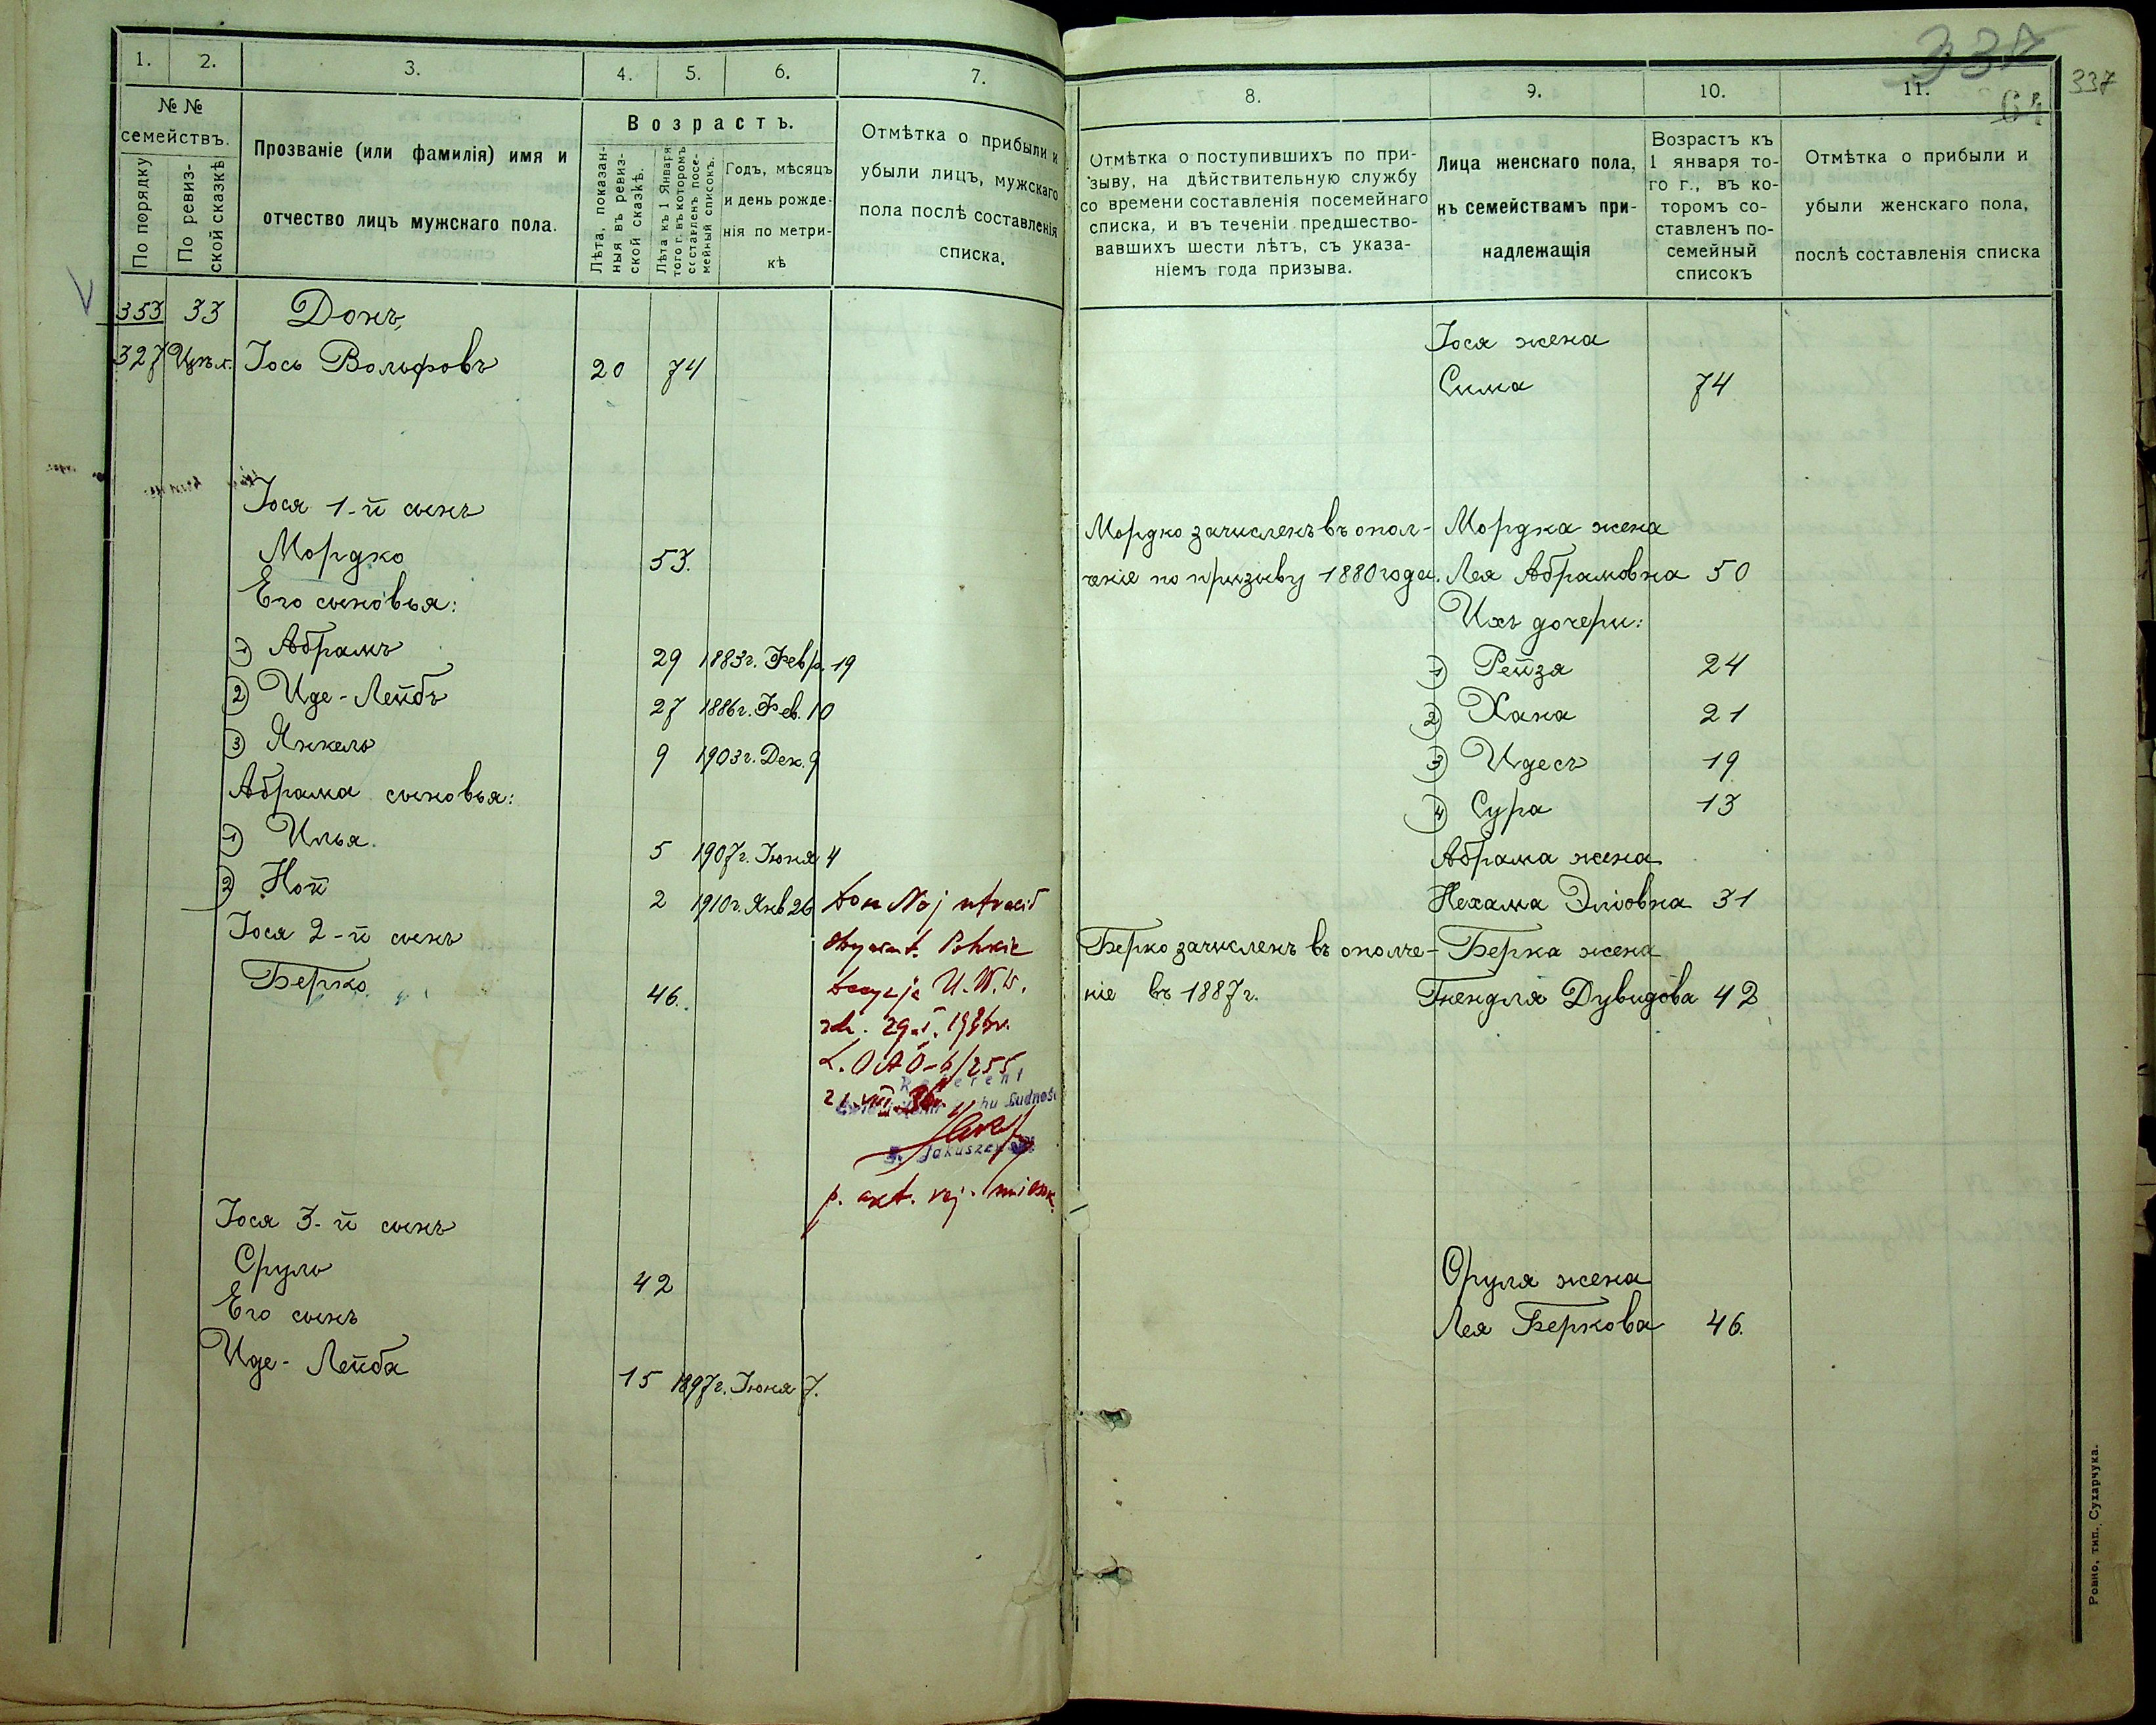 337
337
64
1. 2. 3. 4. 5. 6. 7.
№ №
семействъ.
По порядку
По ревиз-
ской сказкѣ
Прозваніе (или фамилія) имя и
отчество лицъ мужскаго пола.
Возрастъ.
Лѣта, показан-
ныя въ ревиз-
ской сказкѣ.
Лѣта къ 1 Января
того г. въ которомъ
составленъ посе-
мейный списокъ.
Годъ, мѣсяцъ
и день рожде-
нія по метри-
кѣ
Отмѣтка о прибыли и
убыли лицъ, мужскаго
пола послѣ составленія
списка.
353 33 Донъ,
327 Іось Вольфовъ 20 74
Іося 1-й сынъ
Мордко 53.
Его сыновья:
1) Абрамъ 29 1883г. Февр. 19
2) Иде-Лейбъ 27 1886г. Фев. 10
3) Янкель 9 1903г. Дек. 9
Абрама сыновья:
1) Илья. 5 1907г. Іюня 4
2) Ной 2 1910г. Янв 26
Don Noj utracił
obywat. Polskie
decyzja U.W.W.
21.VIII.36r.
Referent
Ruchu Ludności
Jakuszew
Іося 2-й сынъ
Берко 46.
Іося 3-й сынъ
Сруль 42
Его сынъ
Иде-Лейба 15 1897г. Іюня 7.
8. 9. 10. 11.
Отмѣтка о поступившихъ по при-
зыву, на дѣйствительную службу
со времени составленія посемейнаго
списка, и въ теченіи предшество-
вавшихъ шести лѣтъ, съ указа-
ніемъ года призыва.
Лица женскаго пола,
къ семействамъ при-
надлежащія
Возрастъ къ
1 января то-
го г., въ ко-
торомъ со-
ставленъ по-
семейный
списокъ
Отмѣтка о прибыли и
убыли женскаго пола,
послѣ составленія списка
Іося жена
Сима 74
Мордко зачисленъ въ опол- Мордка жена
ченіе по призыву 1880 года. Лея Абрамовна 50
Ихъ дочери:
1) Рейза 24
2) Хана 21
3) Идесъ 19
4) Сура 13
Абрама жена
Нехама Эліовна 31
Берко зачисленъ въ ополче- Берка жена
ніе въ 1887г. Гнендля Дувидова 42
Сруля жена
Лея Беркова 46.
Ровно, тип., Сухарчука.